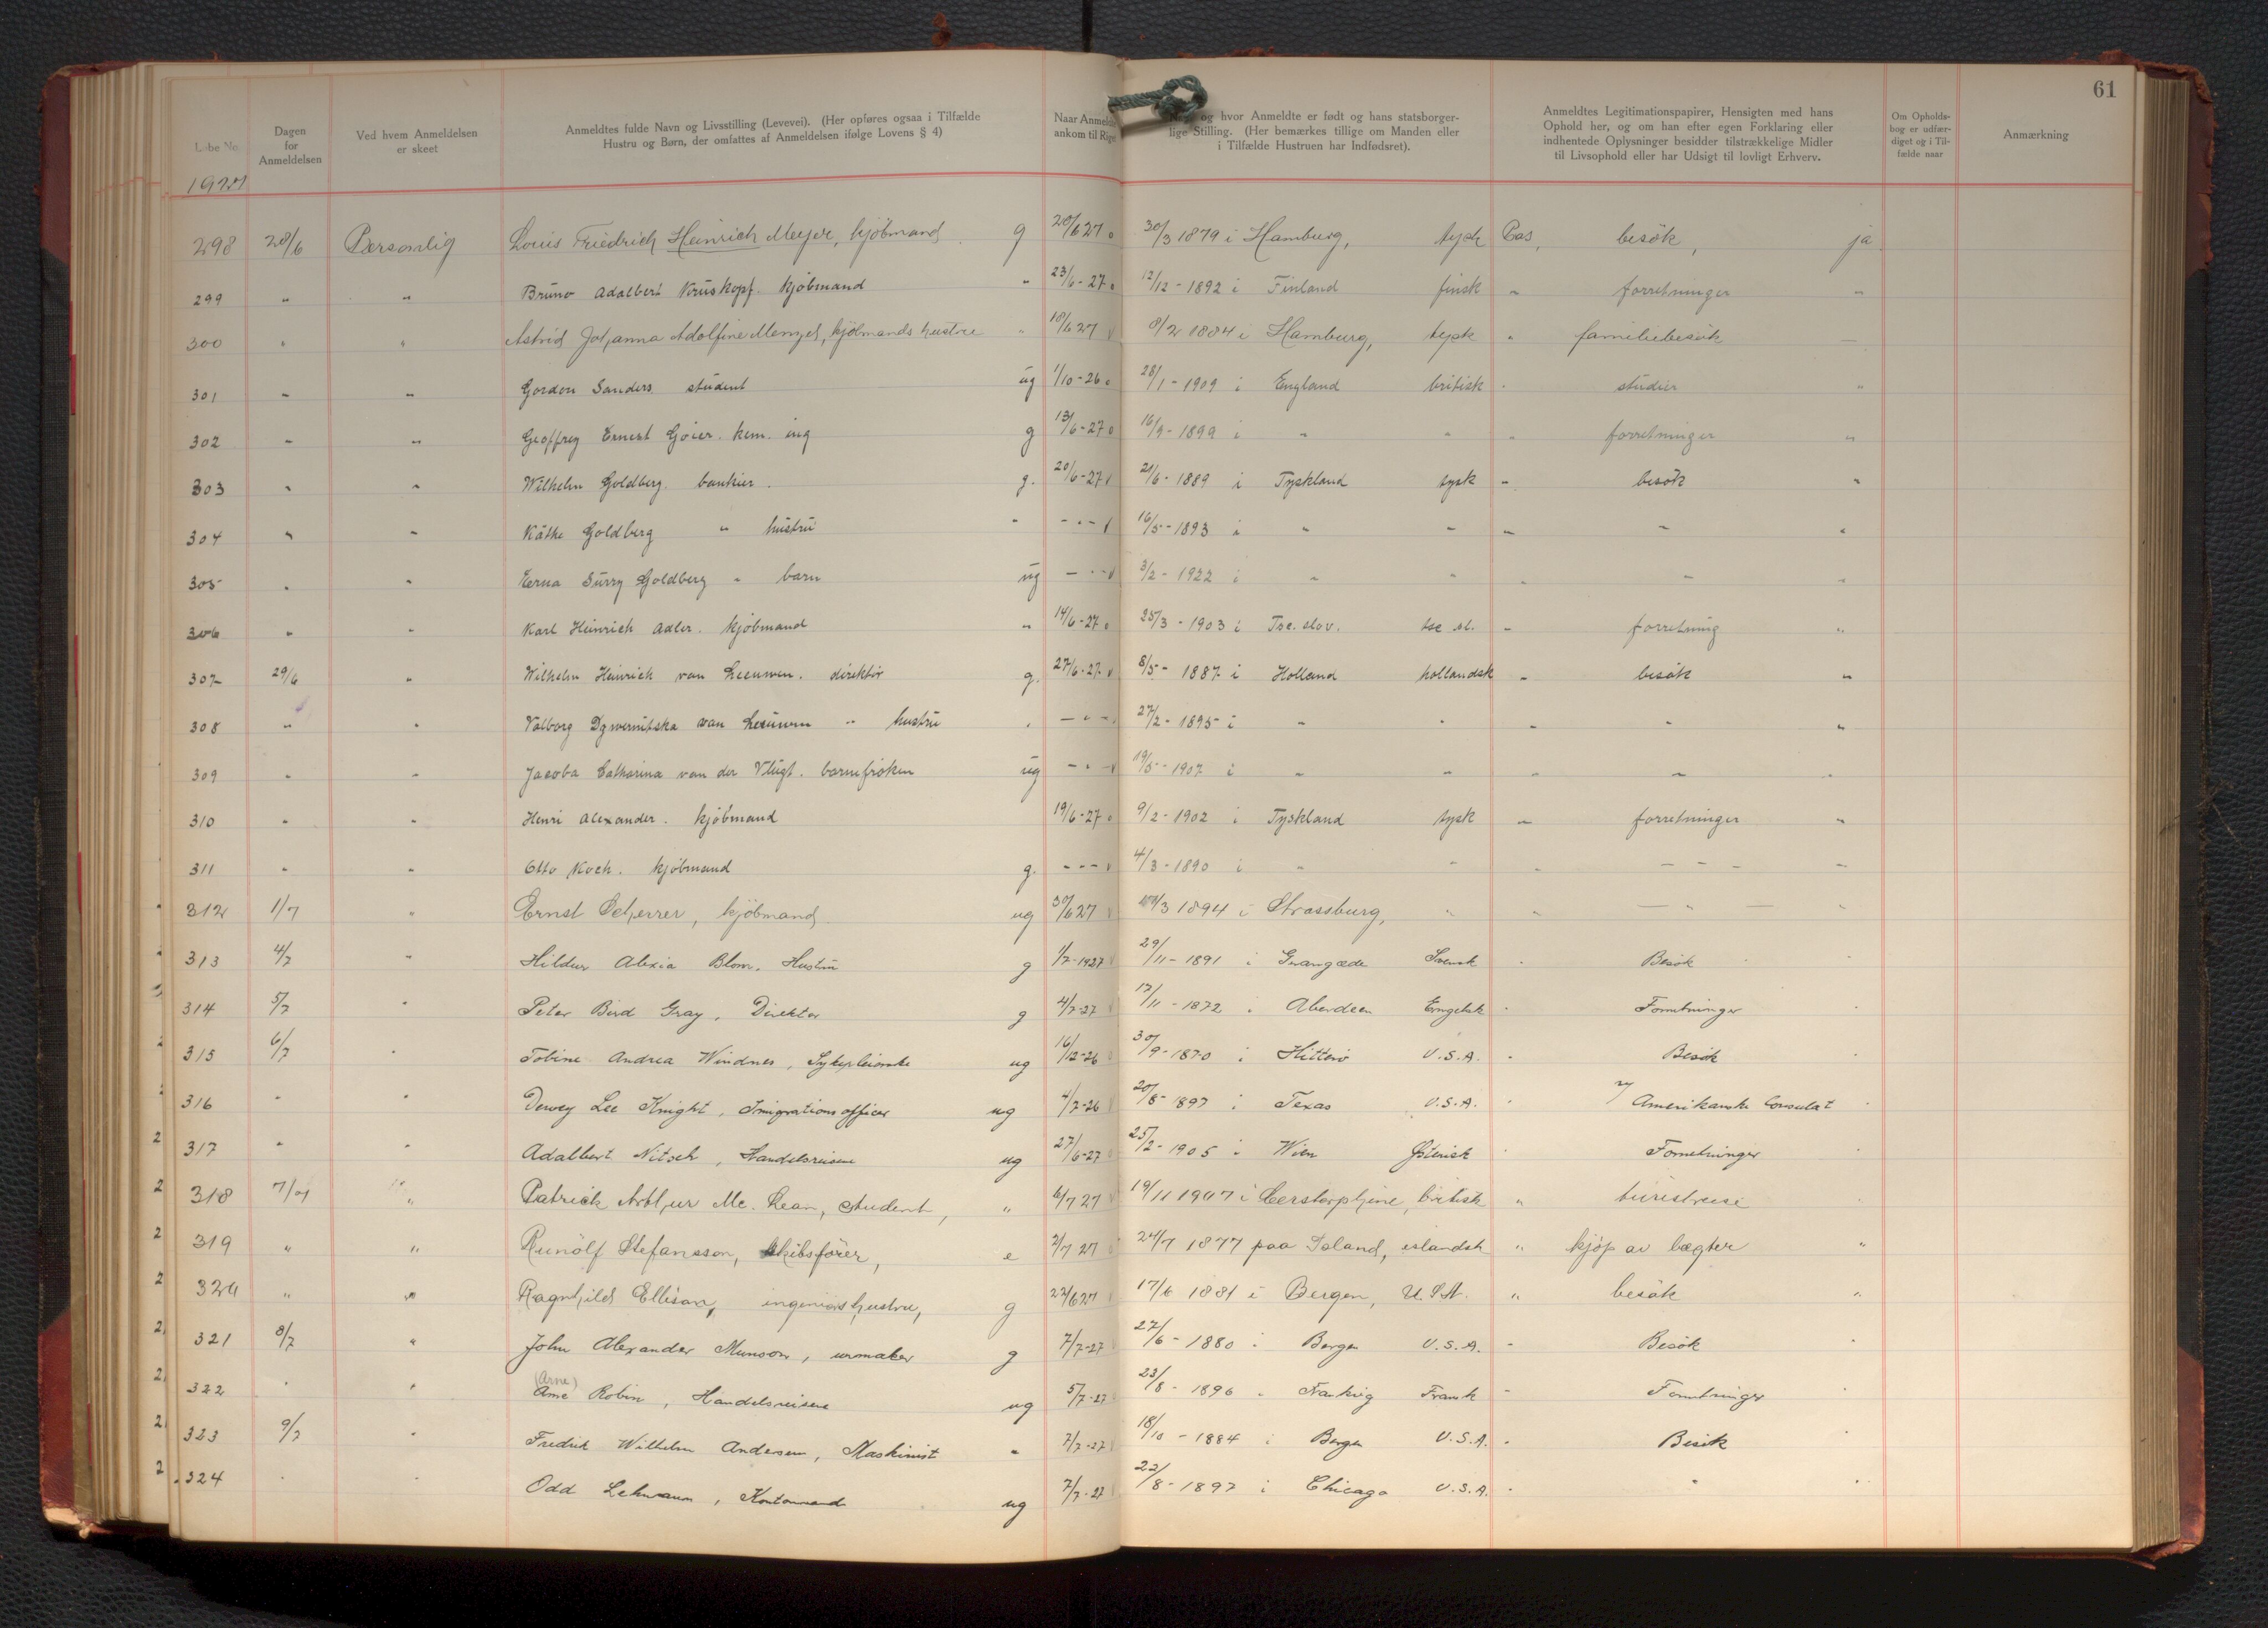 61
Løbe No.
Dagen for Anmeldelsen
Ved hvem Anmeldelsen er skeet
Anmeldtes fulde Navn og Livsstilling (Levevei). (Her opføres ogsaa i Tilfælde Hustru og Børn, der omfattes af Anmeldelsen ifølge Lovens § 4)
Naar Anmeldte ankom til Riget
og hvor Anmeldte er født og hans statsborgerlige Stilling. (Her bemærkes tillige om Manden eller i Tilfælde Hustruen har Indfødsret).
Anmeldtes Legitimationspapirer, Hensigten med hans Ophold her, og om han efter egen Forklaring eller indhentede Oplysninger besidder tilstrækkelige Midler til Livsophold eller har Udsigt til lovligt Erhverv.
Om Opholdsbog er udfærdiget og i Tilfælde naar
Anmærkning
1927
298 28/6 Personlig Louis Friedrich Heinrich Meyer, kjöbmand g 20/6 27 30/3 1879 i Hamburg, tysk Pas, besök, ja
299 " " Bruno Adalbert Kruskopf. kjöbmand " 23/6-27 12/12-1892 i Finland finsk " forretninger "
300 " " Astrid Johanna Adolfine Menzel, kjöbmands hustru " 18/6 27 8/2 1884 i Hamburg, tysk " familiebesök —
301 " " Gordon Sanders. student ug 1/10-26 28/1-1909 i England britisk " studier "
302 " " Geoffrey Ernest Goier. kem. ing g 13/6-27 16/9-1899 i " " " forretninger "
303 " " Wilhelm Goldberg. bankier. g. 20/6-27 21/6-1889 i Tyskland tysk " besök "
304 " " Käthe Goldberg " hustru " - " - 16/5-1893 i " " " " "
305 " " Goldberg " barn ug - " - 3/2-1922 i " " " " "
306 " " Karl Heinrich Adler. kjöbmand " 14/6-27 25/3-1903 i Tse. slov. tse sl. " forretning "
307 29/6 " Wilhelm Heinrich van Leeuwen. direktör g. 27/6-27 8/5-1887 i Holland hollandsk " besök "
308 " " Valborg van Leeuwen " hustru " - " - 27/2-1895 i " " " " "
309 " " Jacoba Catharina van der Vlugt. barnefröken ug - " - 19/5-1907 i " " " " "
310 " " Henri Alexander. kjöbmand 19/6-27 9/2-1902 i Tyskland tysk " forretninger "
311 " " Otto Koch. kjöbmand g. - - - 4/3-1890 i " " " - " - "
312 1/7 " Ernst Scherrer, kjöbmand ug 30/6 27 /3 1894 i Strassburg, " " — " — "
313 4/7 " Hildur Alexia Blom, Hustru g 1/7-1927 29/11-1891 i Svensk " Besök "
314 5/7 " Peter Bird Gray, Direktør g 4/7-27 17/11-1872 " Aberdeen Engelsk " Forretninger "
315 6/7 " Tobine Andrea Windnes, Sykepleierske ug 16/12-26 30/9-1870 i Hitterö U.S.A. " Besök "
316 " " Dewey Lee Knight, Imigrations officer ug 4/7-26 20/8-1897 i Texas U.S.A. " v/ Amerikanske Consulat "
317 " " Adalbert Nitsch, Handelsreisene ug 27/6-27 25/2-1905 i Wien Østerisk " Forretninger
318 7/7 " Patrick Arthur Mc. Lean, student, " 6/7 27 19/11 1907 i britisk " turistreise "
319 " " Runólf Stefansson, skibsförer, e 2/7 27 24/7 1877 paa Island, islandsk " kjöp av lægter "
320 " " Ragnhild Ellison, ingeniørs hustru, g 22/6 27 17/6 1881 i Bergen, U.S.A. " besök "
321 8/7 " John Alexander Munson, urmaker g 7/7-27 27/6-1880 i Bergen U.S.A. " Besök "
(Arne)
322 " " Ame Robin, Handelsreisene ug 5/7-27 23/8-1896 " Frankrig Fransk " Forretninger "
323 9/7 " Fredrik Wilhelm Andersen, Maskinist " 7/7-27 18/10-1884 i Bergen U.S.A. " Besök "
324 " " Odd Lehmann, Kontormand ug 7/7-27 22/8-1897 i Chicago U.S.A. " " "